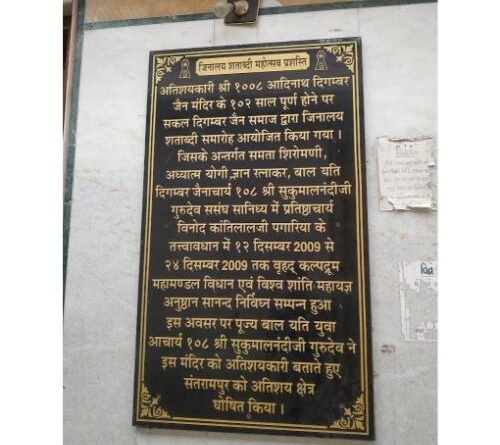 जिनालय शताब्दी महोत्सव प्रशस्ति
अतिशयकारी श्री १००८ आदिनाथ दिगम्बर
जैन मंदिर के १०२ साल पूर्ण होने पर
सकल दिगम्बर जैन समाज द्वारा जिनालय
शताब्दी समारोह आयोजित किया गया ।
जिसके अन्तर्गत समता शिरोमणी,
अध्यात्म योगी,ज्ञान रत्नाकर, बाल यति
दिगम्बर जैनाचार्य १०८ श्री सुकुमालनंदीजी
गुरुदेव ससंघ सानिध्य में प्रतिष्ठाचार्य
विनोद कांतिलालजी पगारिया के
तत्त्वावधान में १२ दिसम्बर 2009 से
२४ दिसम्बर 2009 तक वृहद् कल्पद्रूम
महामण्डल विधान एवं विश्व शांति महायज्ञ
अनुष्ठान सानन्द निर्विघ्न सम्पन्न हुआ
इस अवसर पर पूज्य बाल यति युवा
आचार्य १०८ श्री सुकुमालनंदीजी गुरुदेव ने
इस मंदिर को अतिशयकारी बताते हुए
संतरामपुर को अतिशय क्षेत्र
घोषित किया ।